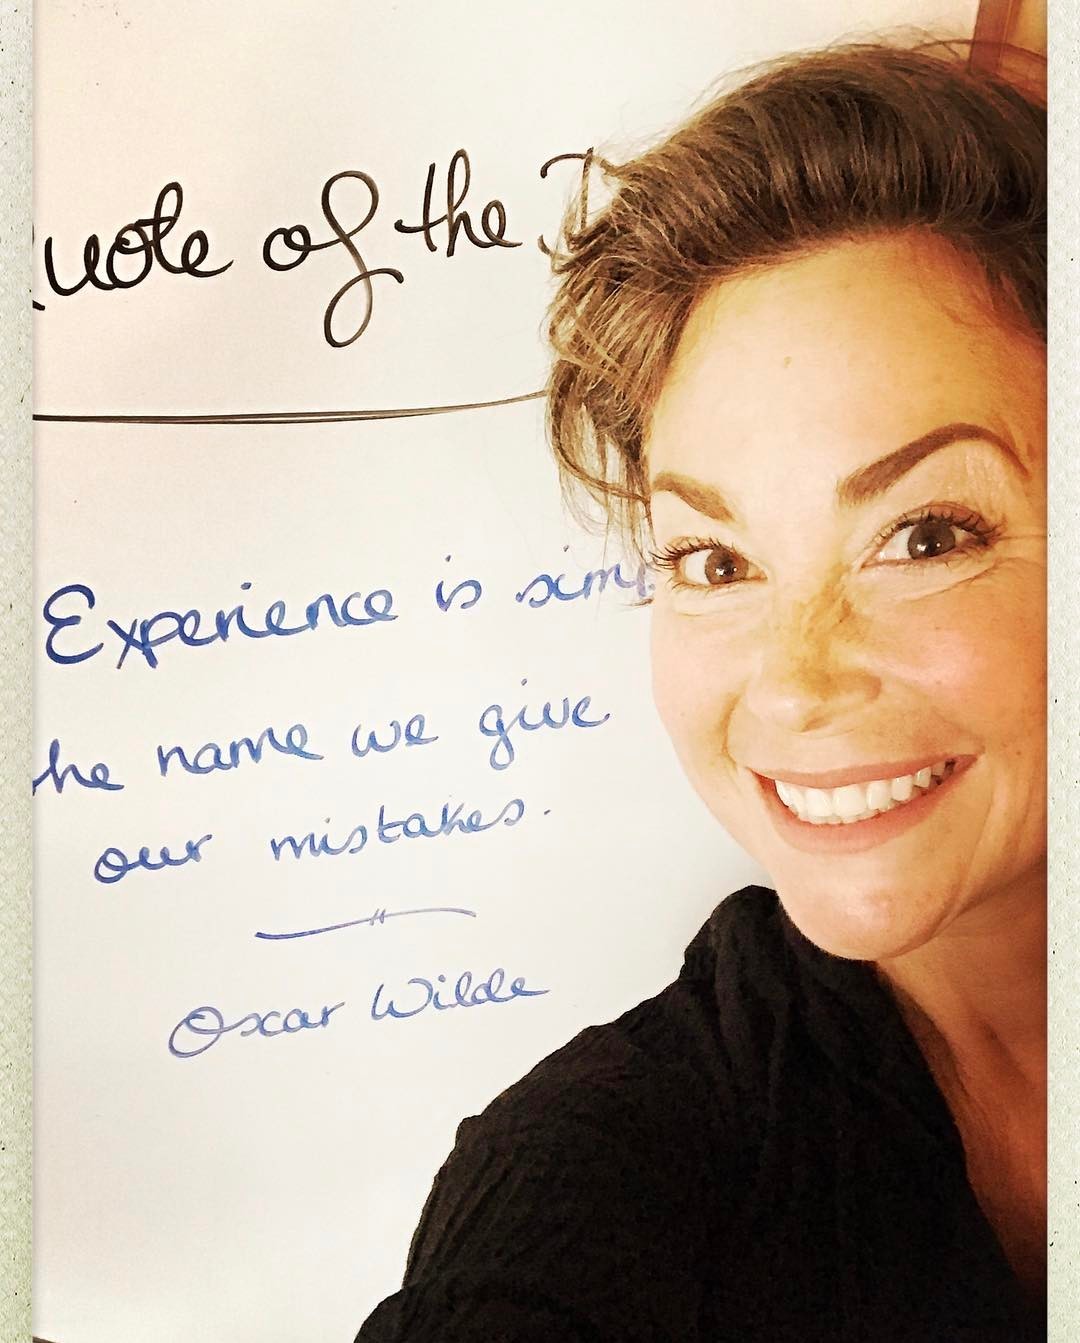 uote of the D
Experience is simp
he name we give
our mistakes.
Oscar Wilde